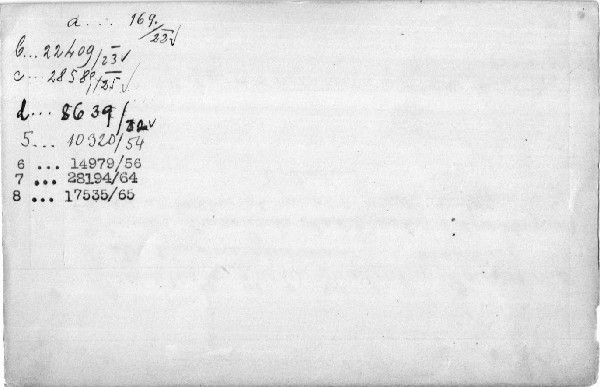 a.... 169./22√
b... 22409/23√
c... 28589/25√
d... 8639/32√
5... 10320/54
6 ... 14979/56
7 ... 28194/64
8 ... 17535/65